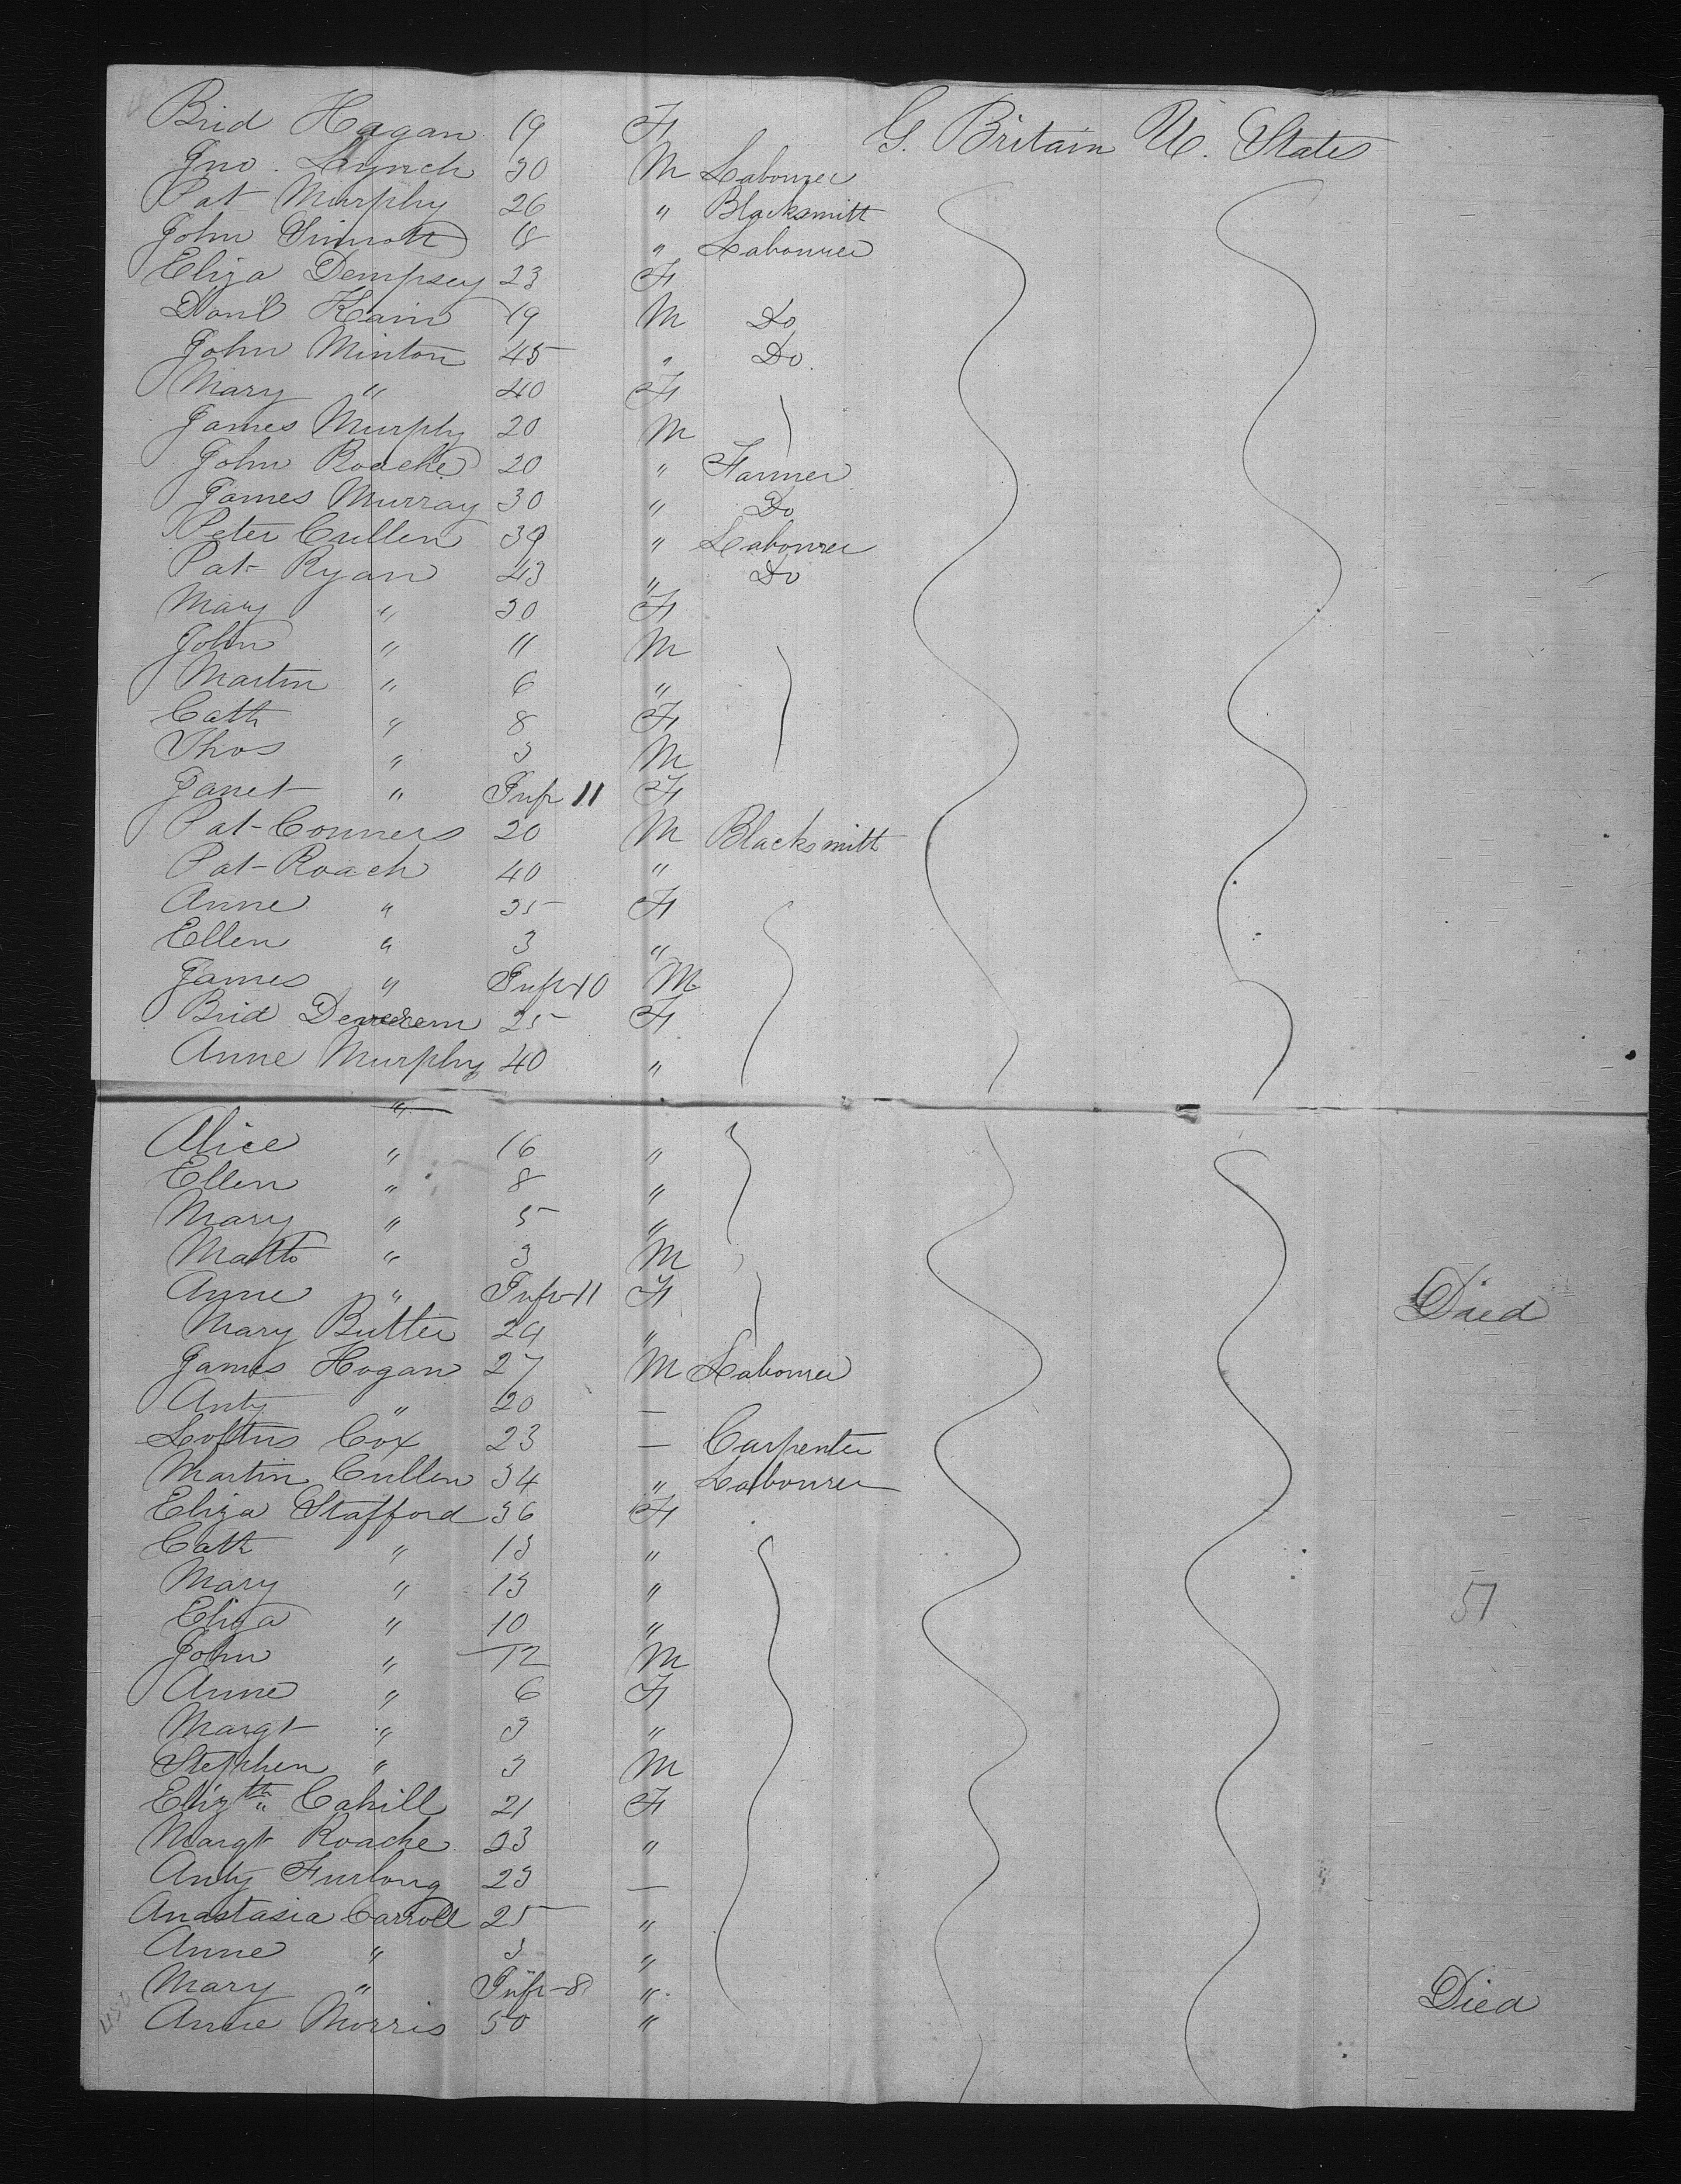 Brid Hagan 19 F G. Britain U. States
Jno. Lynch 30 M Labourer
Pat Murphy 26 " Blacksmith
John Sinnott 18 " Labourer
Eliza Dempsey 23 F
Danl Kain 19 M Do
John Minton 45 " Do
Mary " 40 F
James Murphy 20 M
John Roache 20 " Farmer
James Murray 30 " Do
Peter Cullen 39 " Labourer
Pat Ryan 43 " Do
Mary " 30 F
John " 11 M
Martin " 6 "
Cath " 8 F
Thos " 3 M
Janet " Inft 11 F
Pat Conners 20 M Blacksmith
Pat Roach 40 "
Anne " 35 F
Ellen " 3 "
James " Inft 10 M
Brid 25 F
Anne Murphy 40 "
"
Alice " 16 "
Ellen " 8 "
Mary " 5 "
Matt " 3 M
Anne " Inft 11 F Died
Mary Butler 24 "
James Hogan 27 M Labourer
Anty " 20 —
Loftus Cox 23 — Carpenter
Martin Cullen 34 " Labourer
Eliza Stafford 36 F
Cath " 13 "
Mary " 13 "
Eliza " 10 "
John " 12 M
Anne " 6 F
Margt " 3 "
Stephen " 3 M
Elizth " Cahill 21 F
Margt Roache 23 "
Anty Furlong 23 —
Anastasia Carroll 25 "
Anne " 3 "
Mary " Inft 8 " Died
Anne Morris 50 "
51